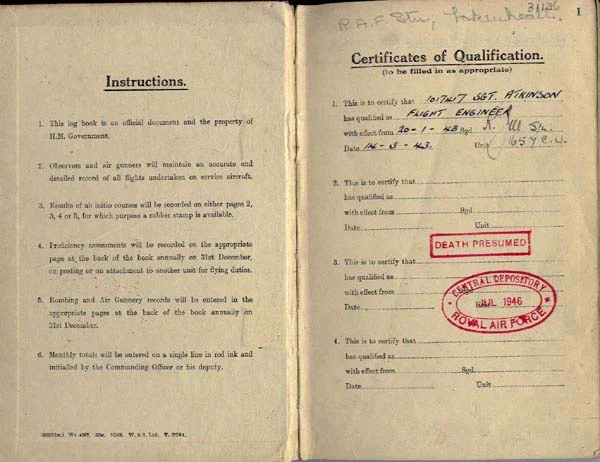 Instructions.
1. This log book is an official document and the property of
H.M. Government.
2. Observers and air gunners will maintain an accurate and
detailed record of all flights undertaken on service aircraft.
3. Results of ab initio courses will be recorded on either pages 2,
3, 4 or 5, for which purpose a rubber stamp is available.
4. Proficiency assessments will be recorded on the appropriate
page at the back of the book annually on 31st December,
on posting or on attachment to another unit for flying duties.
5. Bombing and Air Gunnery records will be entered in the
appropriate pages at the back of the book annually on
31st December.
6. Monthly totals will be entered on a single line in red ink and
initialled by the Commanding Officer or his deputy.
W. & S. Ltd.
31136
1
R.A.F. Stn., Lakenheath.
Certificates of Qualification.
(to be filled in as appropriate)
1. This is to certify that SGT. ATKINSON
has qualified as FLIGHT ENGINEER
with effect from 20-1-43 Sgd.
Date 14-3-43. Unit 1657 C.U.
2. This is to certify that
has qualified as
with effect from Sgd.
Date Unit
DEATH PRESUMED
3. This is to certify that
has qualified as
with effect from Sgd.
Date Unit
CENTRAL DEPOSITORY
JUL 1946
ROYAL AIR FORCE
4. This is to certify that
has qualified as
with effect from Sgd.
Date Unit